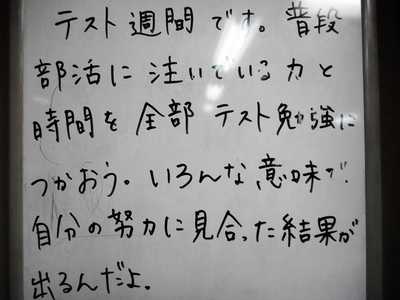 テスト週間です。普段
部活に注いでいる力と
時間を全部テスト勉強に
つかおう。いろんな意味で、
自分の努力に見合った結果が
出るんだよ。